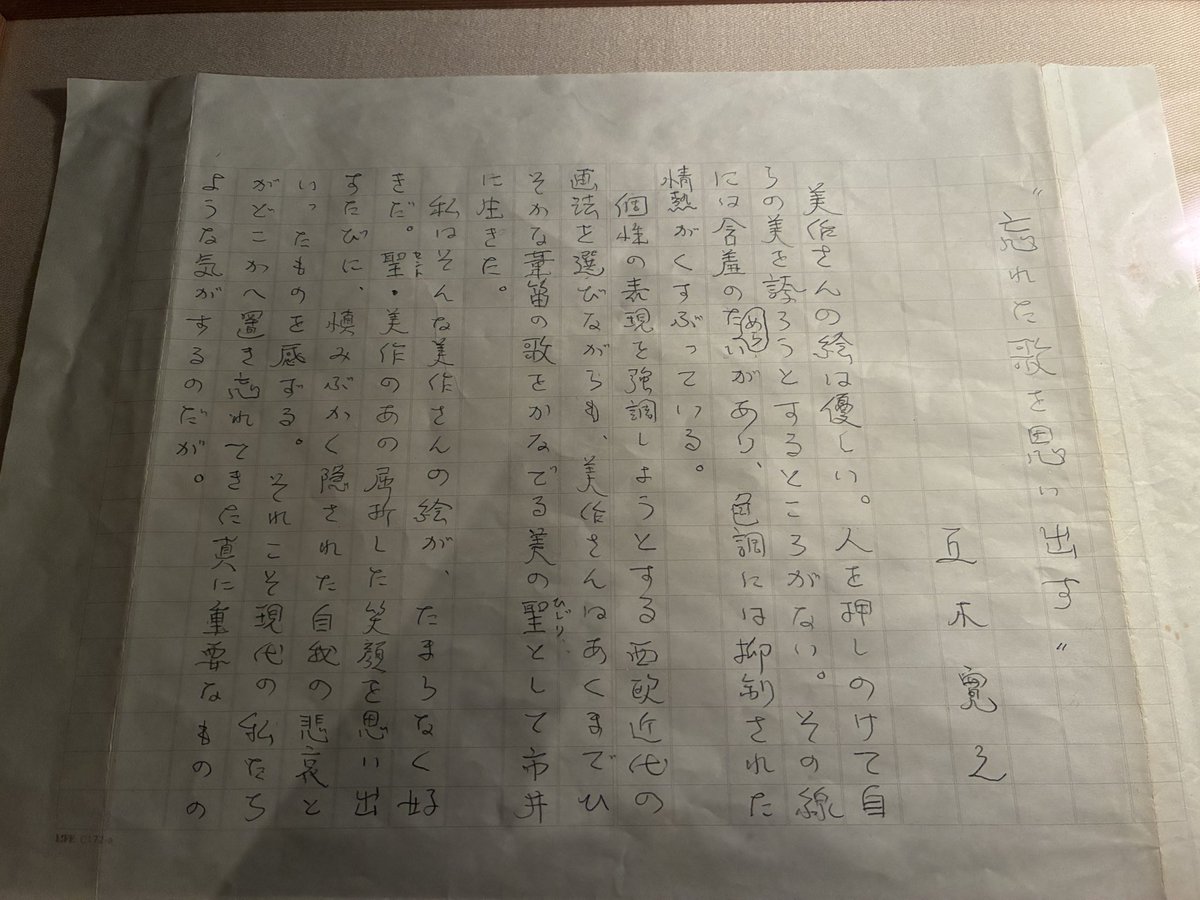 "忘れた歌を思い出す"
五木寛之
美作さんの絵は優しい。人を押しのけて自
らの美を誇ろうとするところがない。その線
には含羞のためらいがあり、色調には抑制された
情熱がくすぶっている。
個性の表現を強調しようとする西欧近代の
画法を選びながらも、美作さんはあくまでひ
そかな葦笛の歌をかなでる美の聖ひじりとして市井
に生きた。
私はそんな美作さんの絵が、たまらなく好
きだ。聖セント・美作のあの屈折した笑顔を思い出
すたびに、慎みぶかく隠された自我の悲哀と
いったものを感ずる。それこそ現代の私たち
がどこかへ置き忘れてきた真に重要なものの
ような気がするのだが。
LIFE